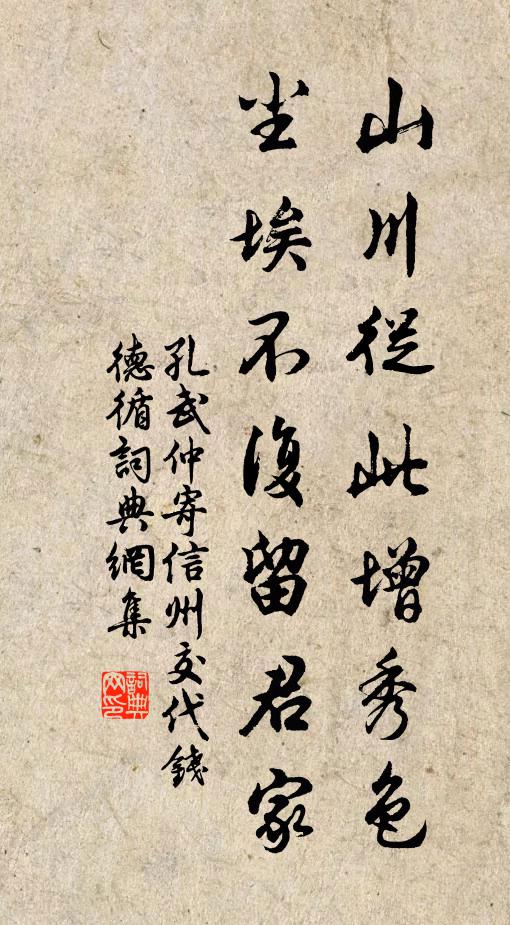 山川從此增秀色
尘埃不復留君家
孔武仲寄信州交代錢
德循詞典網集
詞典
网印